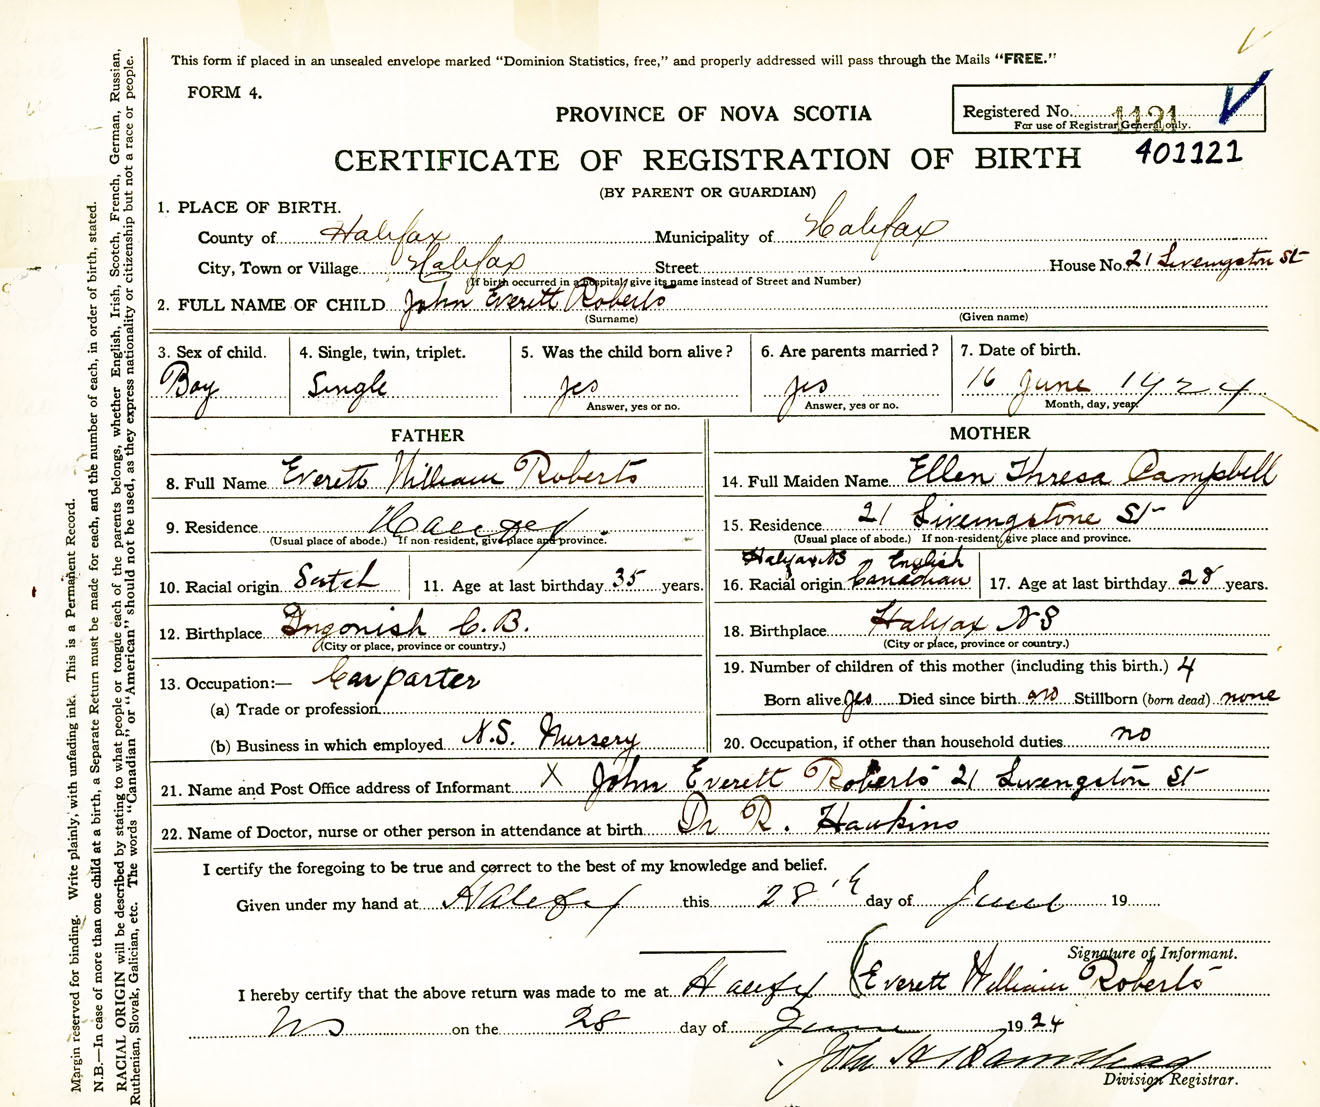 This form if placed in an unsealed envelope marked "Dominion Statistics, free," and properly addressed will pass through the Mails "FREE."
FORM 4.
PROVINCE OF NOVA SCOTIA
Registered No. 1121
For use of Registrar General only.
401121
CERTIFICATE OF REGISTRATION OF BIRTH
(BY PARENT OR GUARDIAN)
1. PLACE OF BIRTH.
County of Halifax Municipality of Halifax
City, Town or Village Halifax Street House No. 21 Livingston St
(If birth occurred in a hospital, give its name instead of Street and Number)
2. FULL NAME OF CHILD John Everett Roberts
(Surname) (Given name)
3. Sex of child. 4. Single, twin, triplet. 5. Was the child born alive? 6. Are parents married? 7. Date of birth.
Boy Single yes yes 16 June 1924
Answer, yes or no. Answer, yes or no. Month, day, year.
FATHER MOTHER
8. Full Name Everett William Roberts 14. Full Maiden Name Ellen Thresa Campbell
9. Residence Halifax 15. Residence 21 Livingstone St
(Usual place of abode.) If non-resident, give place and province. (Usual place of abode.) If non-resident, give place and province.
Halifax NS English
10. Racial origin Scotch 11. Age at last birthday 35 years. 16. Racial origin Canadian 17. Age at last birthday 28 years.
12. Birthplace Ingonish C.B. 18. Birthplace Halifax NS
(City or place, province or country.) (City or place, province or country.)
13. Occupation:— Carparter 19. Number of children of this mother (including this birth.) 4
(a) Trade or profession Born alive yes Died since birth no Stillborn (born dead) none
(b) Business in which employed N.S. Nursery 20. Occupation, if other than household duties no
21. Name and Post Office address of Informant X John Everett Roberts 21 Livingston St
22. Name of Doctor, nurse or other person in attendance at birth Dr R. Hawkins
I certify the foregoing to be true and correct to the best of my knowledge and belief.
Given under my hand at Halifax this 28th day of June 19
Signature of Informant.
I hereby certify that the above return was made to me at Halifax (Everett William Roberts
NS on the 28 day of June 1924
John H
Division Registrar.
Margin reserved for binding. Write plainly, with unfading ink. This is a Permanent Record.
N.B.—In case of more than one child at a birth, a Separate Return must be made for each, and the number of each, in order of birth, stated.
RACIAL ORIGIN will be described by stating to what people or tongue each of the parents belongs, whether English, Irish, Scotch, French, German, Russian,
Ruthenian, Slovak, Galician, etc. The words "Canadian" or "American" should not be used, as they express nationality or citizenship but not a race or people.